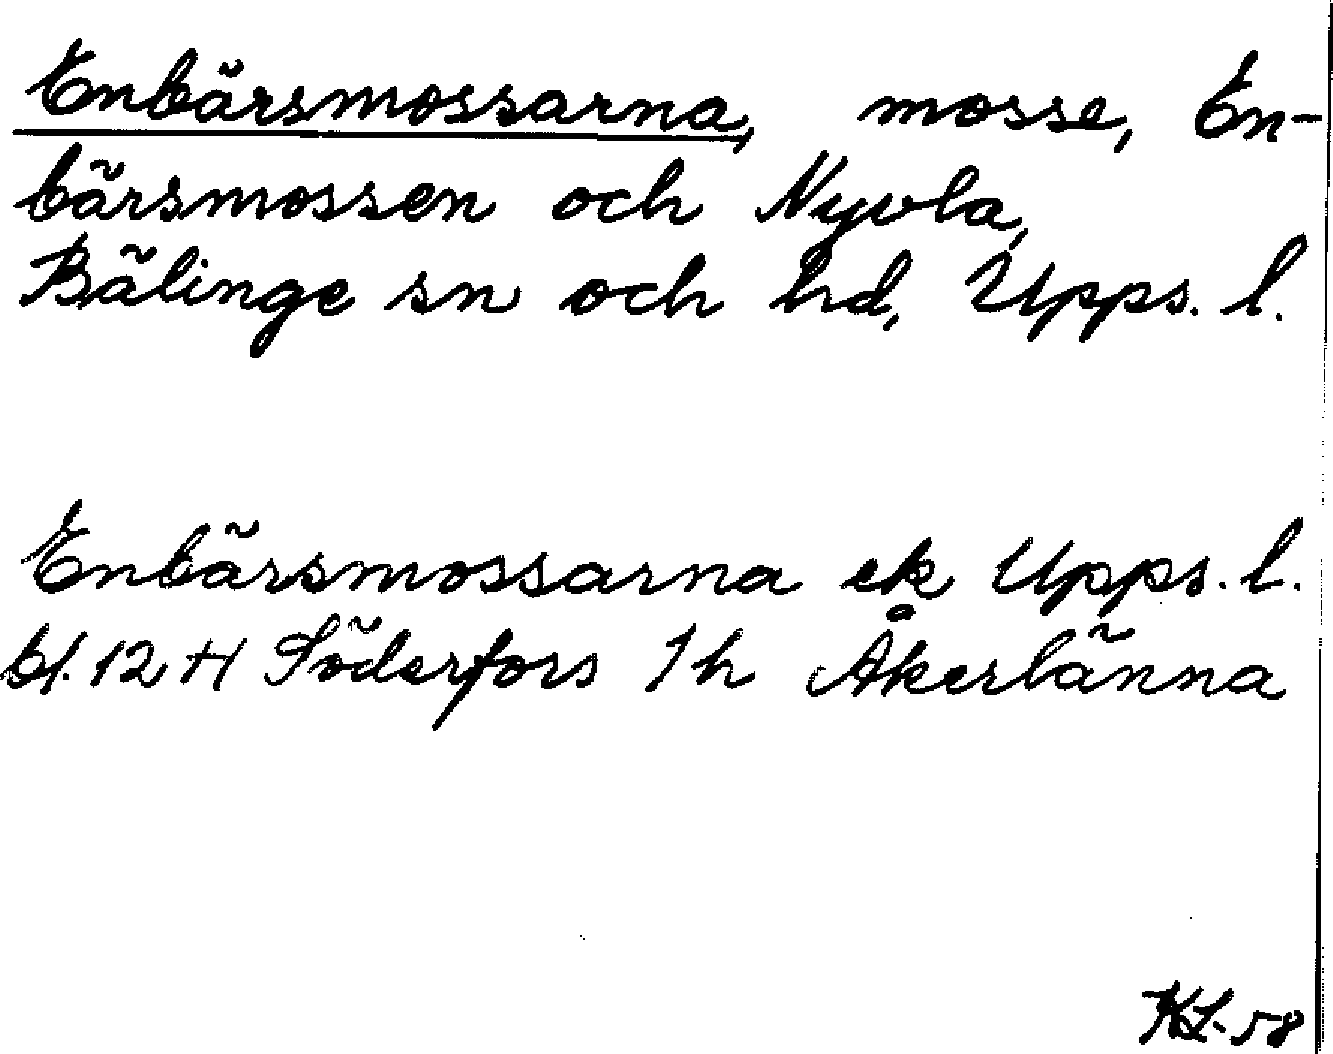 Enbärsmossarna, mosse, En-
bärsmossen och Nyvla,
Bälinge sn och hd, Upps. l.
Enbärsmossarna ek Upps. l.
bl. 12 H Söderfors 1 h Åkerlänna
KL-58